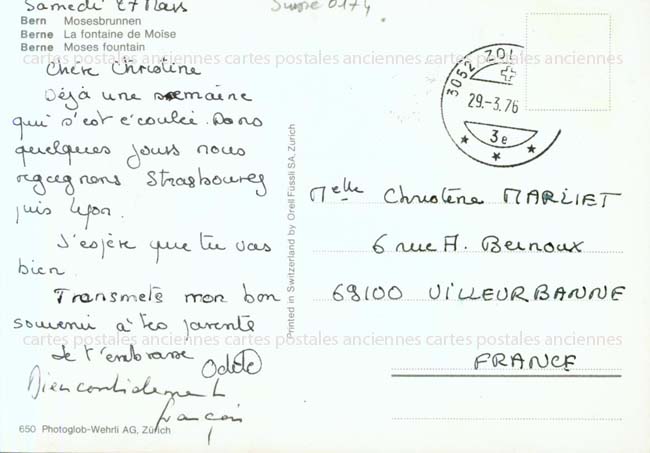 Samedi 27 Mars
Suisse 0174
Bern Mosesbrunnen
Berne La fontaine de Moïse
Berne Moses fountain
cartes postales anciennes cartes postales anciennes cartes postales anciennes
Chère Christine
Déjà une semaine
qui s'est écoulée. Dans
quelques jours nous
regagnons Strasbourg
puis Lyon.
J'espère que tu vas
bien.
Transmets mon bon
souvenir à tes parents
Je t'embrasse
Odette
Bien cordialement
François
650 Photoglob-Wehrli AG, Zürich
Printed in Switzerland by Orell Füssli SA, Zürich
3052 ZOL
29.-3.76
3e
Melle Christine MARLIET
6 rue A. Bernoux
69100 VILLEURBANNE
cartes postales anciennes cartes postales anciennes cartes postales anciennes
FRANCE